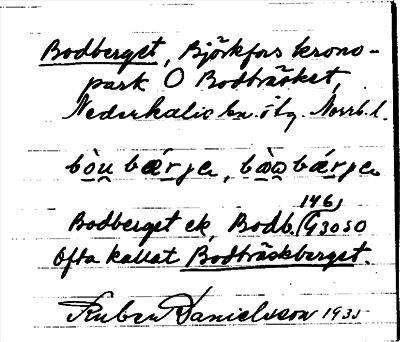 Bodberget, Björkfors krono-
park O Bodträsket,
Nederkalix sn. ö tg. Norrb. l.
Bodberget ek. Bodb. (G3050
146)
Ofta kallat Bodträskberget.
Ruben Danielsson 1935